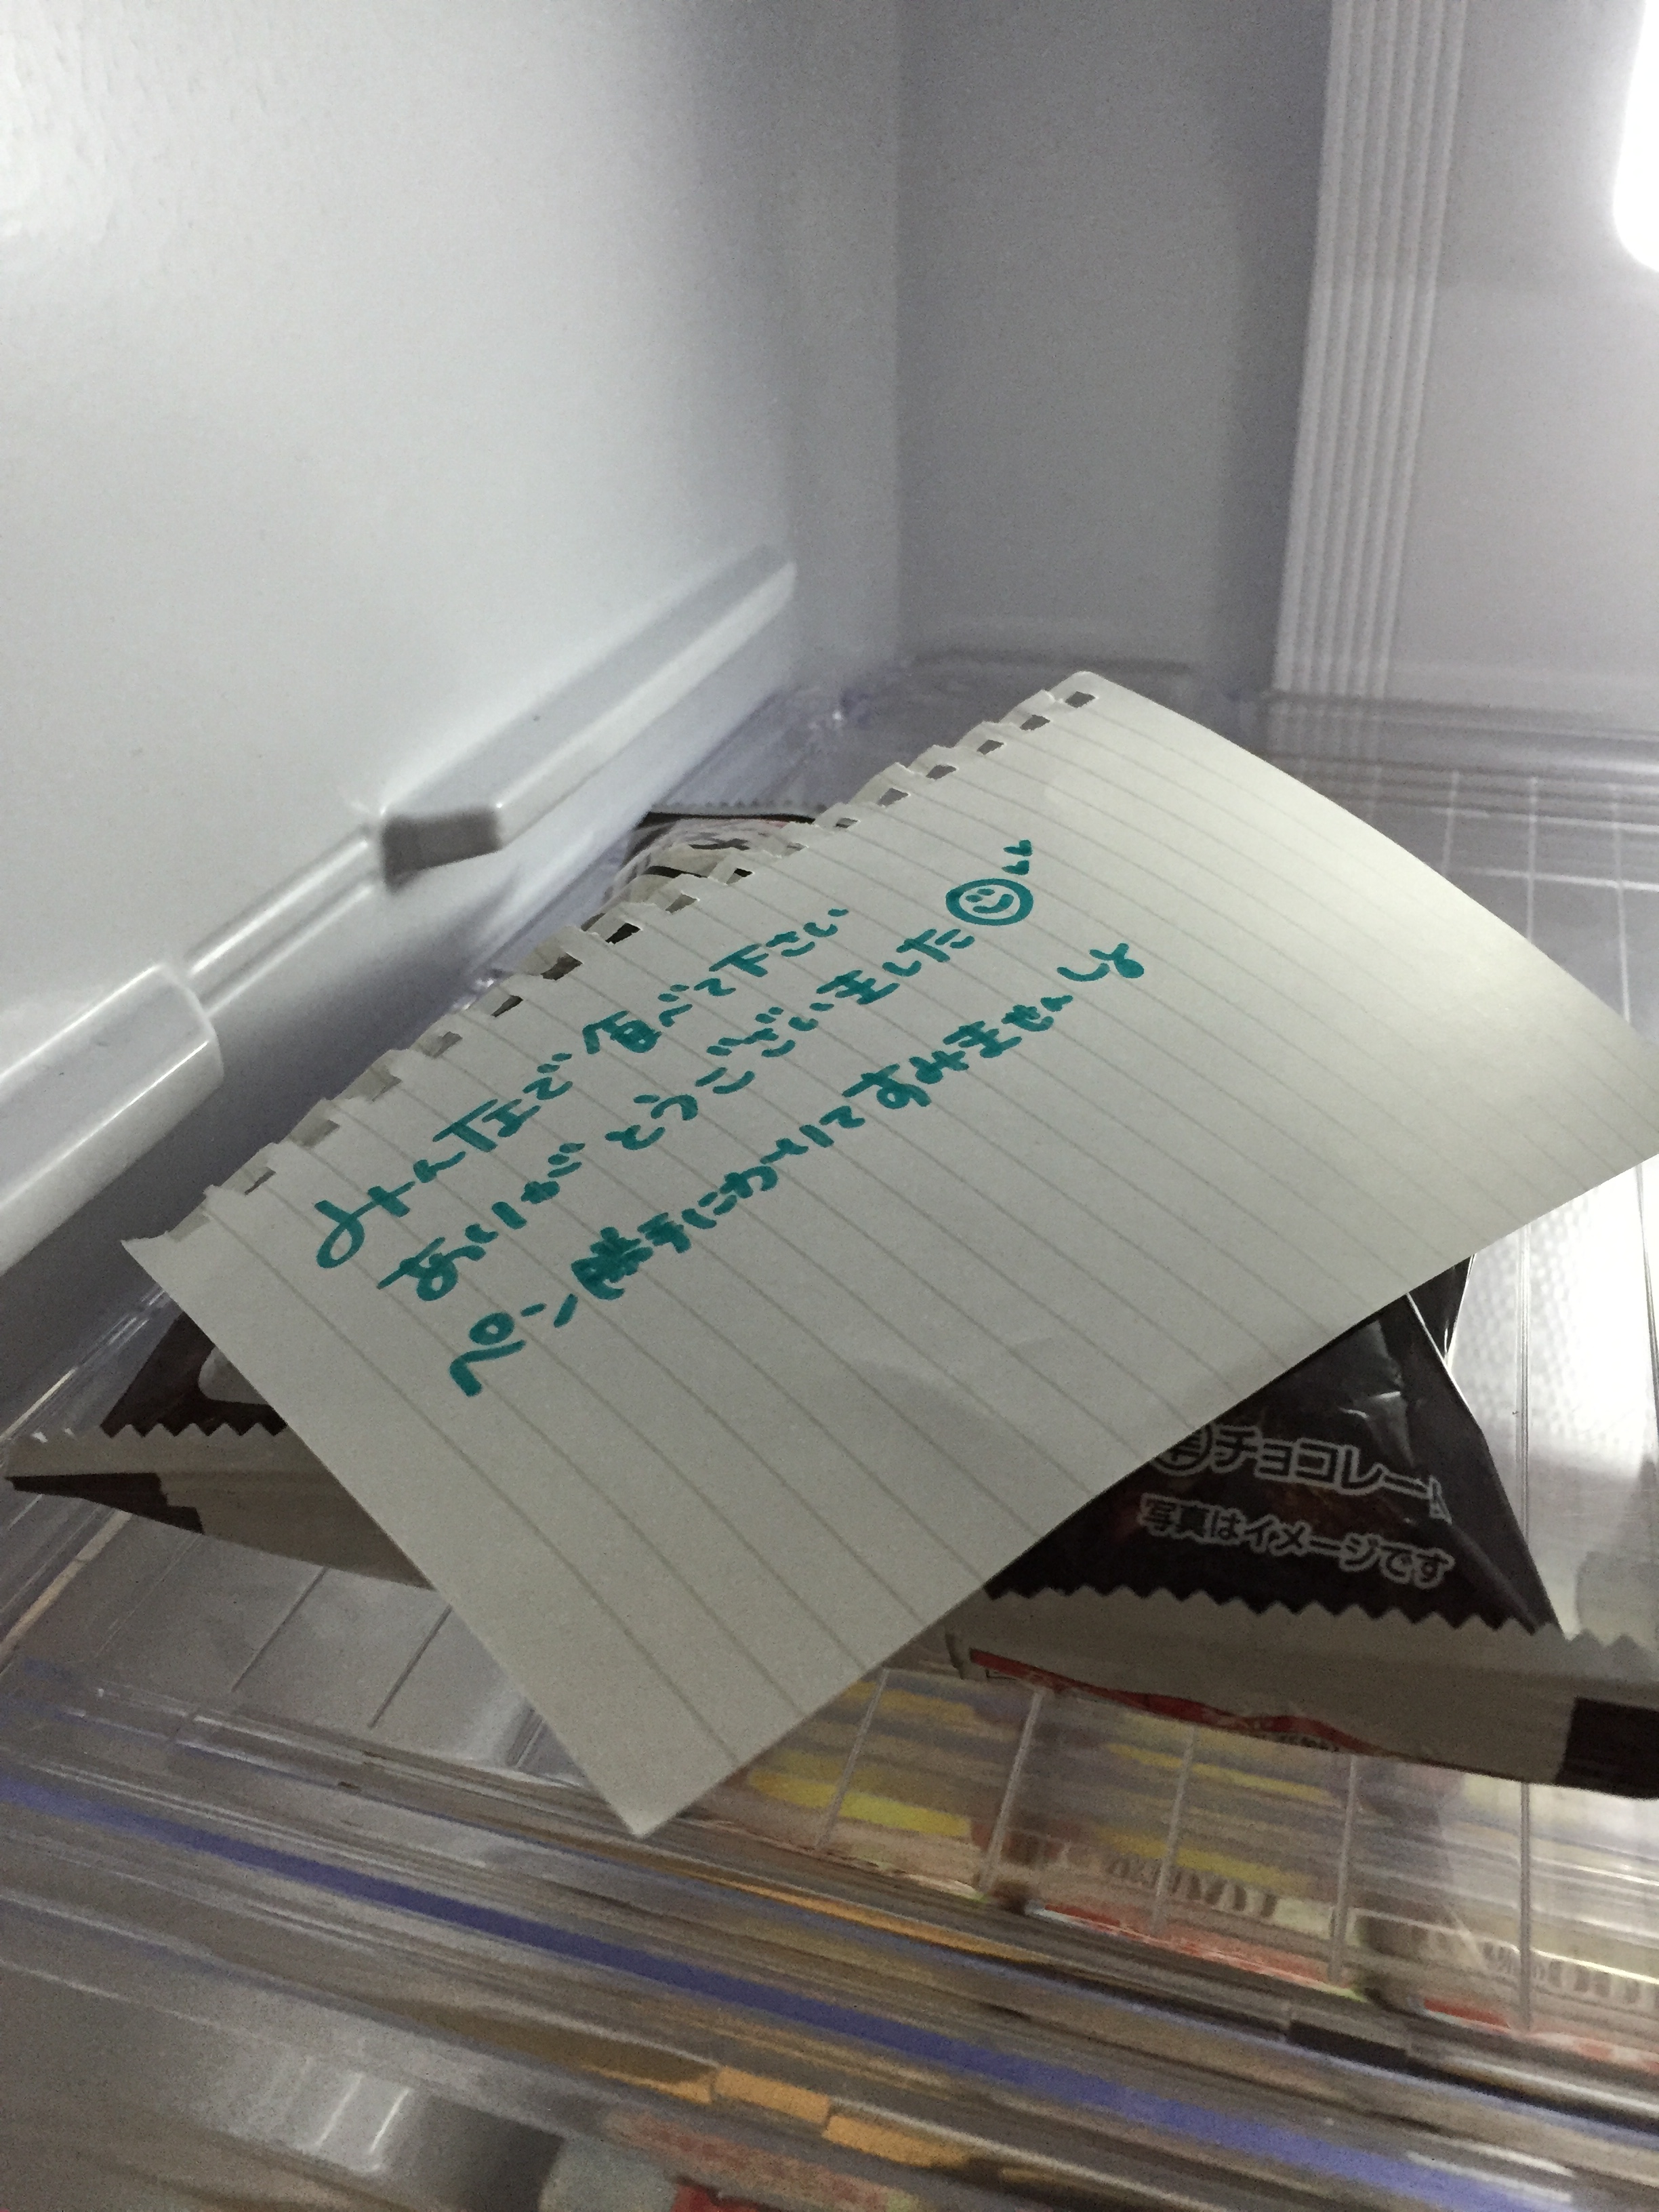 みんなで食べて下さい
ありがとうございました
ペン勝手にかりてすみません
チョコレート
写真はイメージです